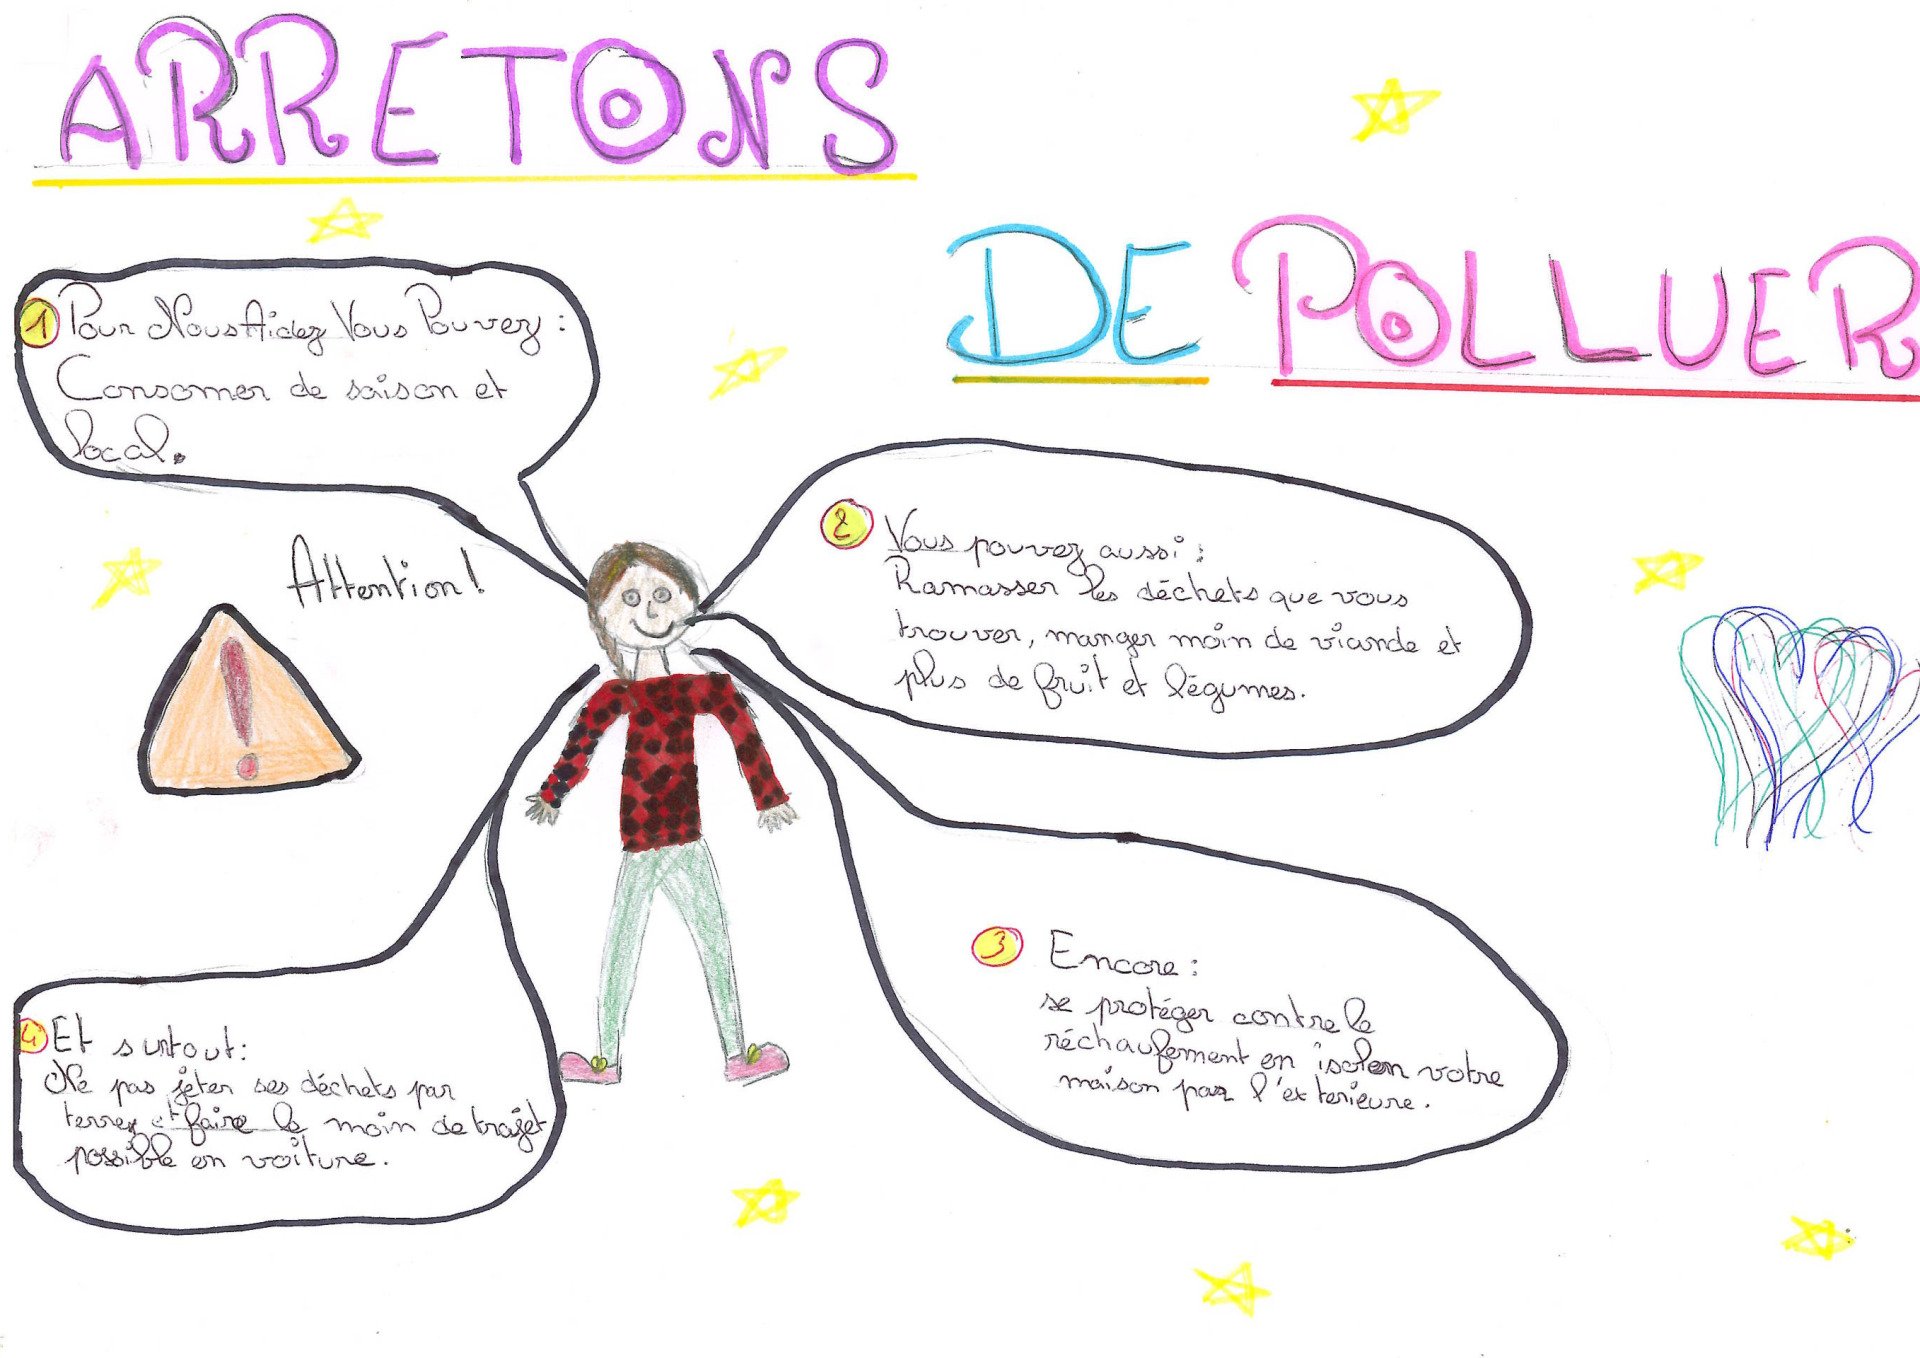 ARRETONS
DE POLLUER
1 Pour Nous Aidez Vous Pouvez :
Consomer de saison et
local.
Attention !
2 Vous pouvez aussi :
Ramasser les déchets que vous
trouver, manger moin de viande et
plus de fruit et légumes.
3 Encore :
se protéger contre le
réchaufement en isolem votre
maison par l'exterieure.
4 Et surtout :
Ne pas jeter ses déchets par
terrex et faire le moin de trajet
possible en voiture.